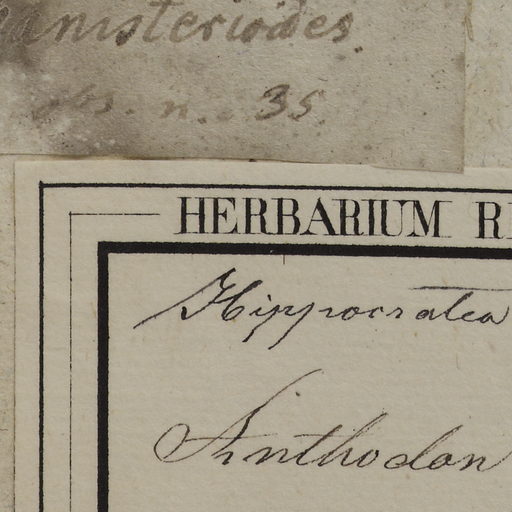 anisterioides
obs. n. 35
HERBARIUM R
Hippocratea
Anthodon